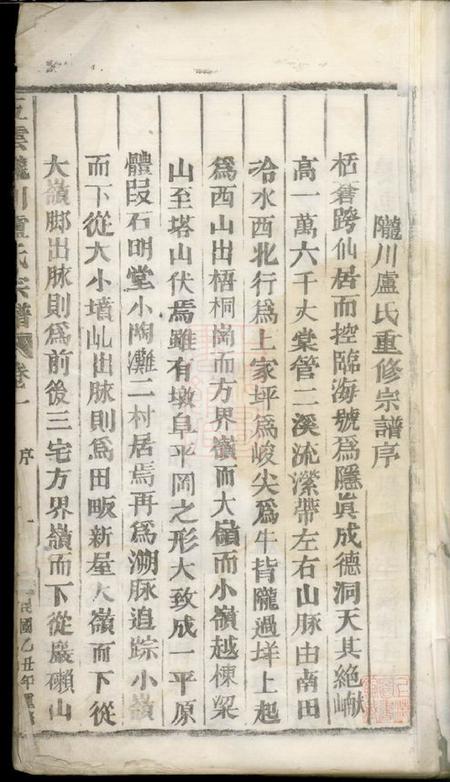 隴川盧氏重修宗譜序
栝蒼跨仙居而控臨海號爲隱眞成德洞天其絶巘
高一萬六千丈棠管二溪流瀠帶左右山脉由南田
冾水西北行爲上家坪爲峻尖爲牛背隴過垟上起
爲西山出梧桐崗而方界嶺而大嶺而小嶺越棟梁
山至塔山伏焉雖有墩阜平岡之形大致成一平原
體段石明堂小陶灘二村居焉再爲溯脉追踪小嶺
而下從大小墳屾出脉則爲田畈新屋大嶺而下從
大嶺脚出脉則爲前後三宅方界嶺而下從巖瀨山
五雲隴川盧氏宗譜 卷一 序 一 民國乙丑年重修